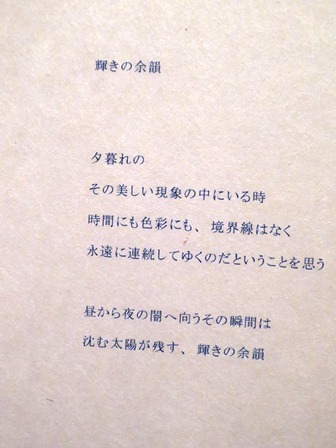 輝きの余韻
夕暮れの
その美しい現象の中にいる時
時間にも色彩にも、境界線はなく
永遠に連続してゆくのだということを思う
昼から夜の闇へ向うその瞬間は
沈む太陽が残す、輝きの余韻